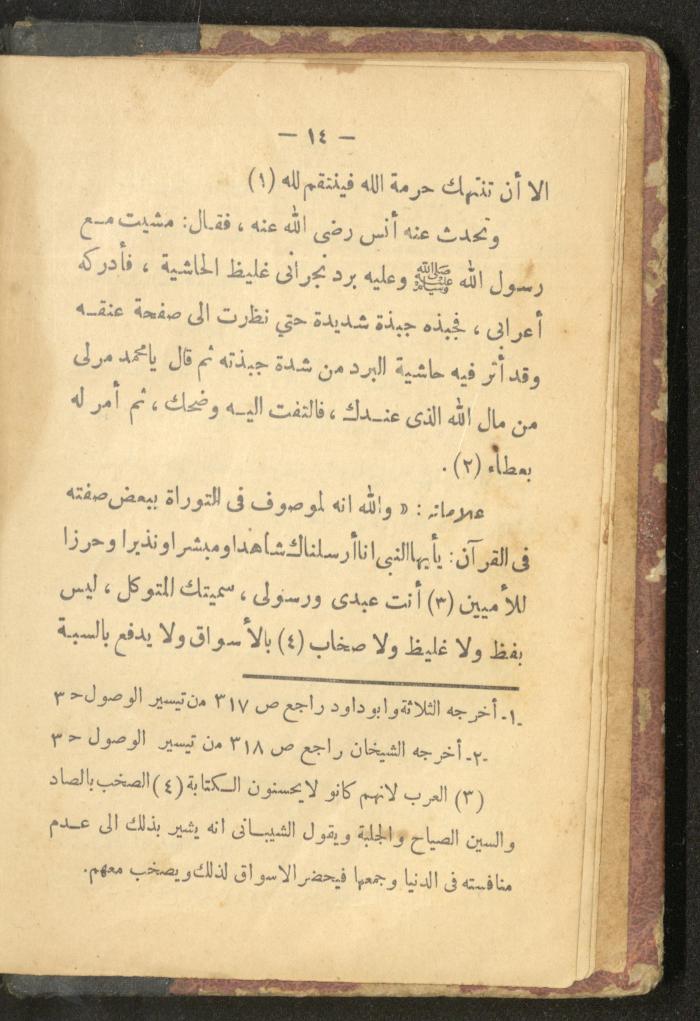 — ١٤ —
الا أن تنتهك حرمة الله فينتقم لله (١)
وتحدث عنه أنس رضى الله عنه ، فقال: مشيت مع
رسول الله ﷺ وعليه برد نجرانى غليظ الحاشية ، فأدركه
أعرابى ، فجبذه جبذة شديدة حتي نظرت الى صفحة عنقه
وقد أثر فيه حاشية البرد من شدة جبذته ثم قال يامحمد مرلى
من مال الله الذى عندك ، فالتفت اليه وضحك ، ثم أمر له
بعطاء (٢) .
علاماته : « والله انه لموصوف فى التوراة ببعض صفته
فى القرآن: يأيها النبى انا أرسلناك شاهدا ومبشرا ونذيرا وحرزا
للأميين (٣) أنت عبدى ورسولى ، سميتك المتوكل ، ليس
بفظ ولا غليظ ولا صخاب (٤) بالأسواق ولا يدفع بالسبة
-١- أخرجه الثلاثة وابو داود راجع ص ٣١٧ من تيسير الوصول ح ٣
-٢- أخرجه الشيخان راجع ص ٣١٨ من تيسير الوصول ح ٣
(٣) العرب لانهم كانو لايحسنون الكتابة (٤) الصخب بالصاد
والسين الصياح والجلبة ويقول الشيبانى انه يشير بذلك الى عدم
منافسته فى الدنيا وجمعها فيحضر الاسواق لذلك ويصخب معهم.